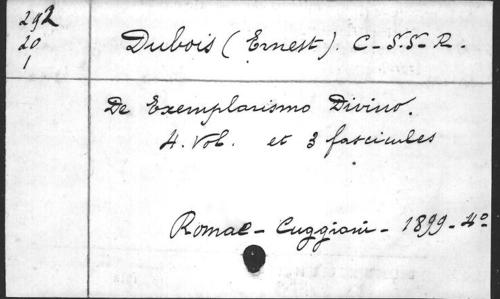 292
20
1
Dubois (Ernest). C-S.S-R.
De Exemplarismo Divino.
4. Vol. et 3 fascicules
Romae - Cuggiani - 1899 - 4º